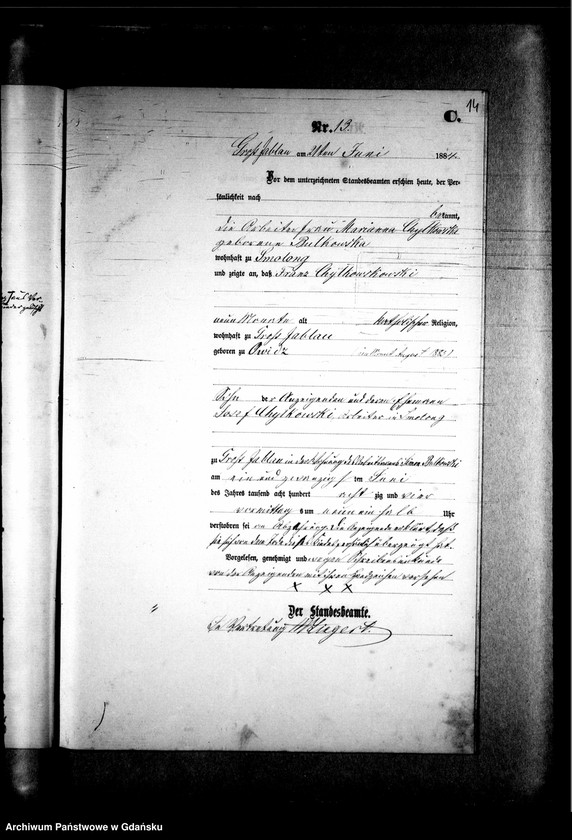 14
C.
Nr. 13.
Groß Jablau am 21ten Juni 1884.
Vor dem unterzeichneten Standesbeamten erschien heute, der Per-
sönlichkeit nach
bekannt,
die Arbeiterfrau Marianna Chylkowski
geborene Bulkowska
wohnhaft zu Smolong
und zeigte an, daß Franz Chylkowski
neun Monate alt katholischer Religion,
wohnhaft zu Groß Jablau
geboren zu Owicz im Monat August 1883
Sohn der Anzeigenden und deren Ehemann
Josef Chylkowski, Arbeiter in Smolong
zu Groß Jablau in der Behausung des Bulkowski
am ein und zwanzigsten Juni
des Jahres tausend acht hundert acht zig und vier
vormittag s um neun ein halb Uhr
verstorben sei an Abzehrung. Die Anzeigende erklärt, daß
sie sich von dem Tode dieses Kindes persönlich überzeugt hat.
Vorgelesen, genehmigt und wegen Schreibensunkunde
von der Anzeigenden mit ihren Handzeichen versehen
x x x
Der Standesbeamte.
In Vertretung
Archiwum Państwowe w Gdańsku